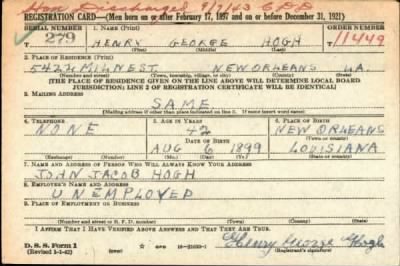 Hon Discharged 9/9/43
REGISTRATION CARD—(Men born on or after February 17, 1897 and on or before December 31, 1921)
SERIAL NUMBER 1. NAME (Print) ORDER NUMBER
279 HENRY GEORGE HOGH 11449
(First) (Middle) (Last)
2. PLACE OF RESIDENCE (Print)
5422 MILNE ST. NEW ORLEANS LA.
(Number and street) (Town, township, village, or city) (County) (State)
[THE PLACE OF RESIDENCE GIVEN ON THE LINE ABOVE WILL DETERMINE LOCAL BOARD
JURISDICTION; LINE 2 OF REGISTRATION CERTIFICATE WILL BE IDENTICAL]
3. MAILING ADDRESS
SAME
(Mailing address if other than place indicated on line 2. If same insert word same)
4. TELEPHONE 5. AGE IN YEARS 6. PLACE OF BIRTH
NONE 42 NEW ORLEANS
DATE OF BIRTH (Town or county)
AUG 6 1899 LOUISIANA
(Exchange) (Number) (Mo.) (Day) (Yr.) (State or country)
7. NAME AND ADDRESS OF PERSON WHO WILL ALWAYS KNOW YOUR ADDRESS
JOHN JACOB HOGH
8. EMPLOYER'S NAME AND ADDRESS
UNEMPLOYED
9. PLACE OF EMPLOYMENT OR BUSINESS
(Number and street or R. F. D. number) (Town) (County) (State)
I AFFIRM THAT I HAVE VERIFIED ABOVE ANSWERS AND THAT THEY ARE TRUE.
D. S. S. Form 1
(Revised 1-1-42) (over) 16—21630-1 Henry George Hogh
(Registrant's signature)